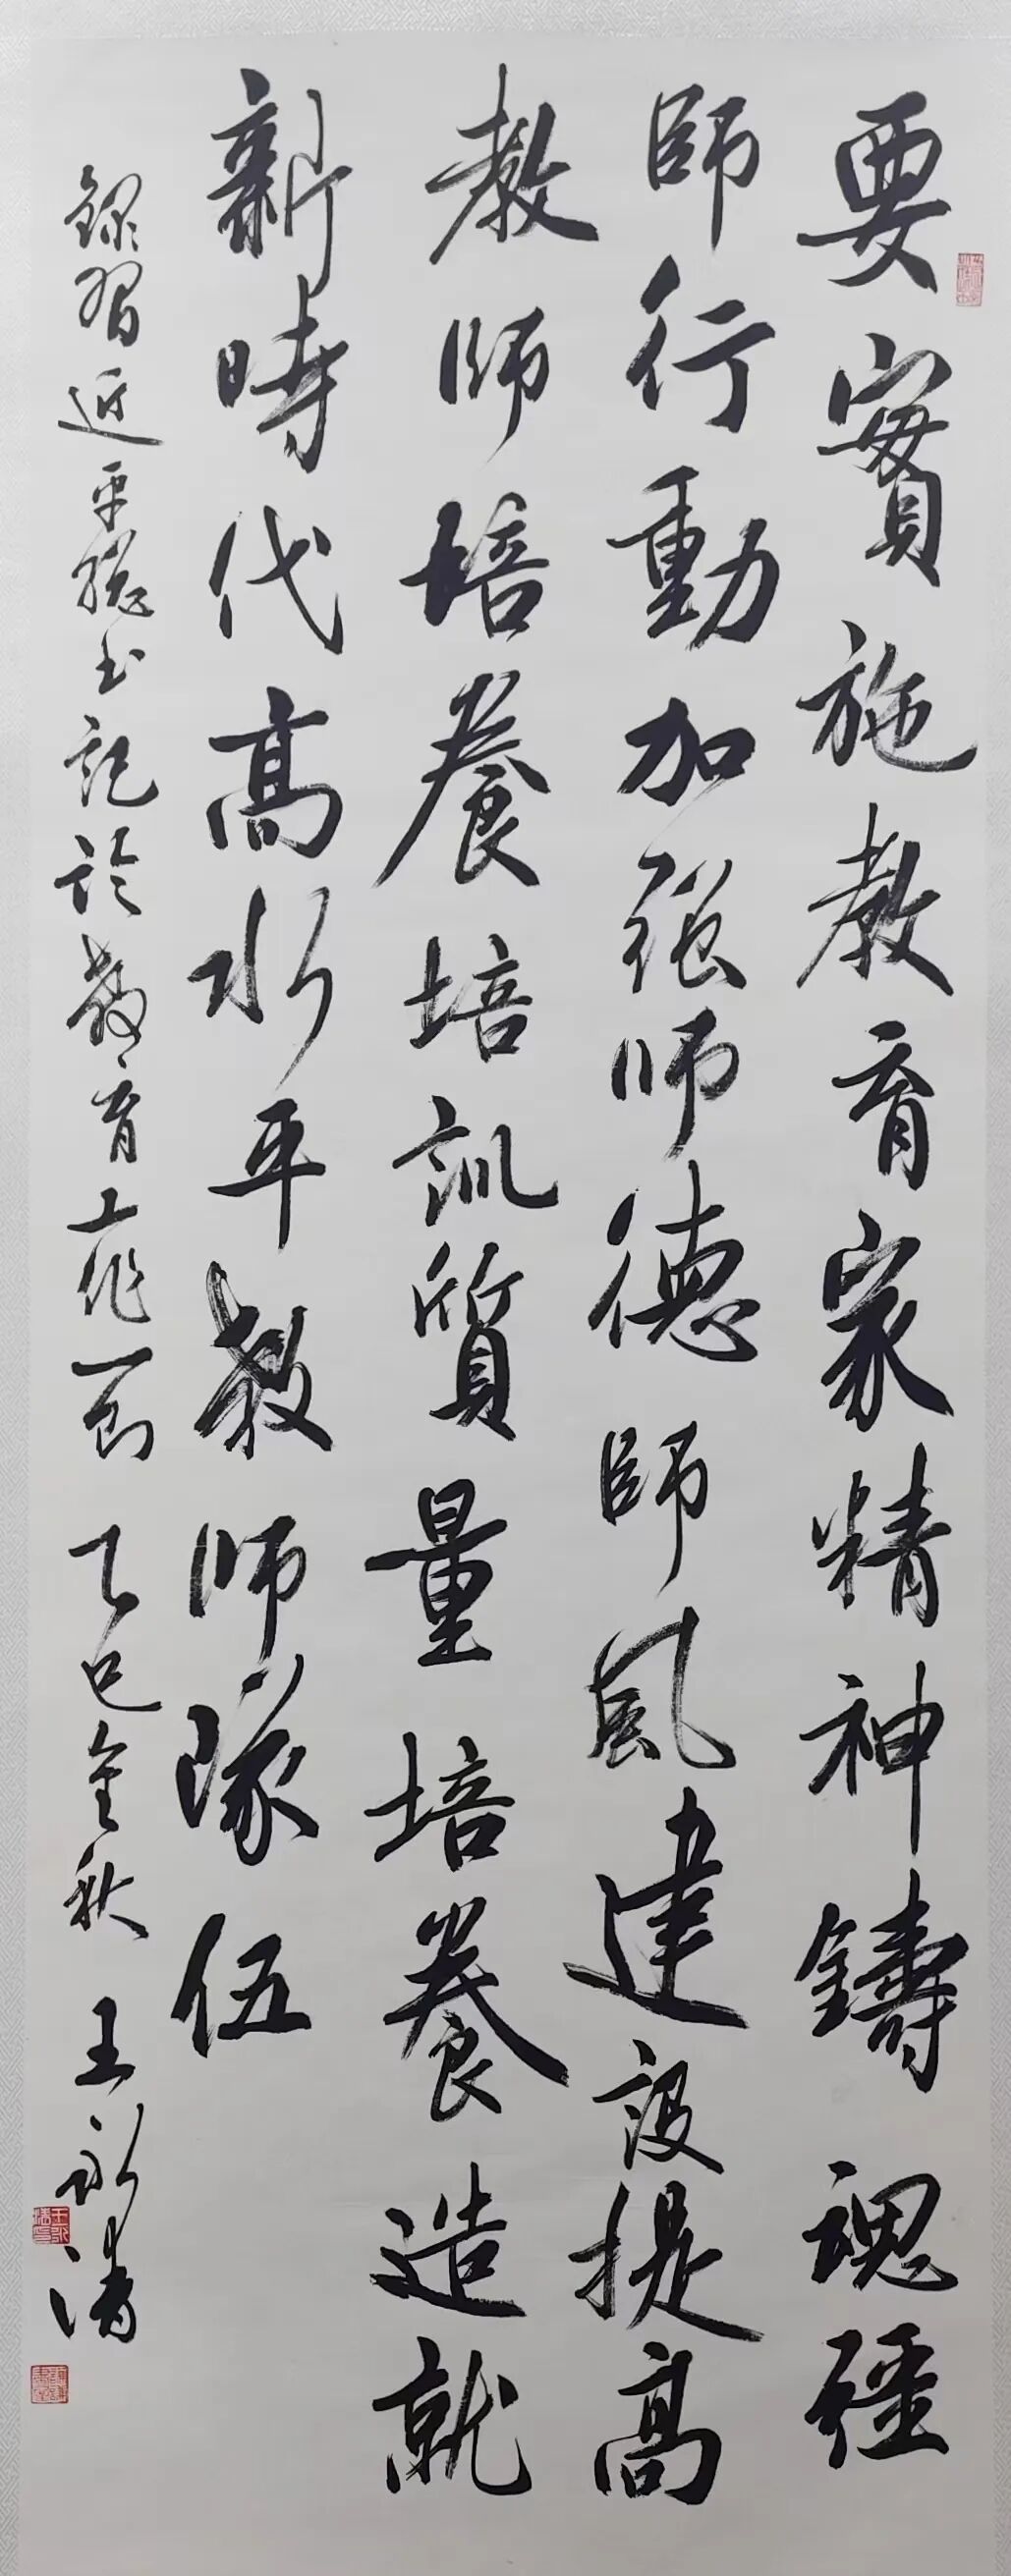 要實施教育家精神鑄魂彊
師行動加强师德師風建設提高
教师培養培訓質量培養造就
新時代高水平教师隊伍
録習近平總书記論教育工作一節 乙巳金秋 王永清